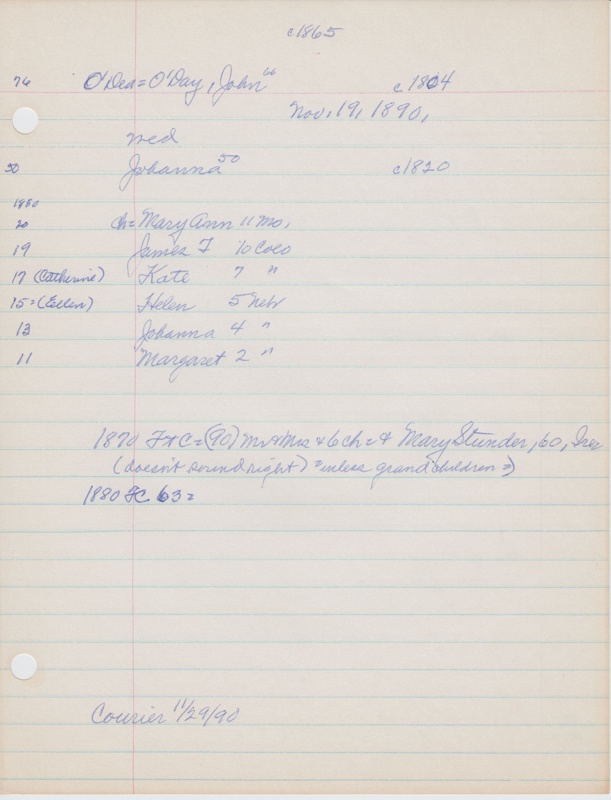 c1865
76 O'Dea = O'Day, John 66 c1804
Nov. 19, 1890,
wed
50 Johanna 50 c1820
1880
20 ch = Mary Ann 11 Mo,
19 James F 10 Colo
17 (Catherine) Kate 7 "
15 = (Eellen) Helen 5 Nebr
13 Johanna 4 "
11 Margaret 2 "
1870 F+C = (90) Mr & Mrs + 6 ch = + Mary Stunder, 60, Ire
(doesn't sound right) = unless grandchildren =)
1880 FC 63 =
Courier 11/29/90